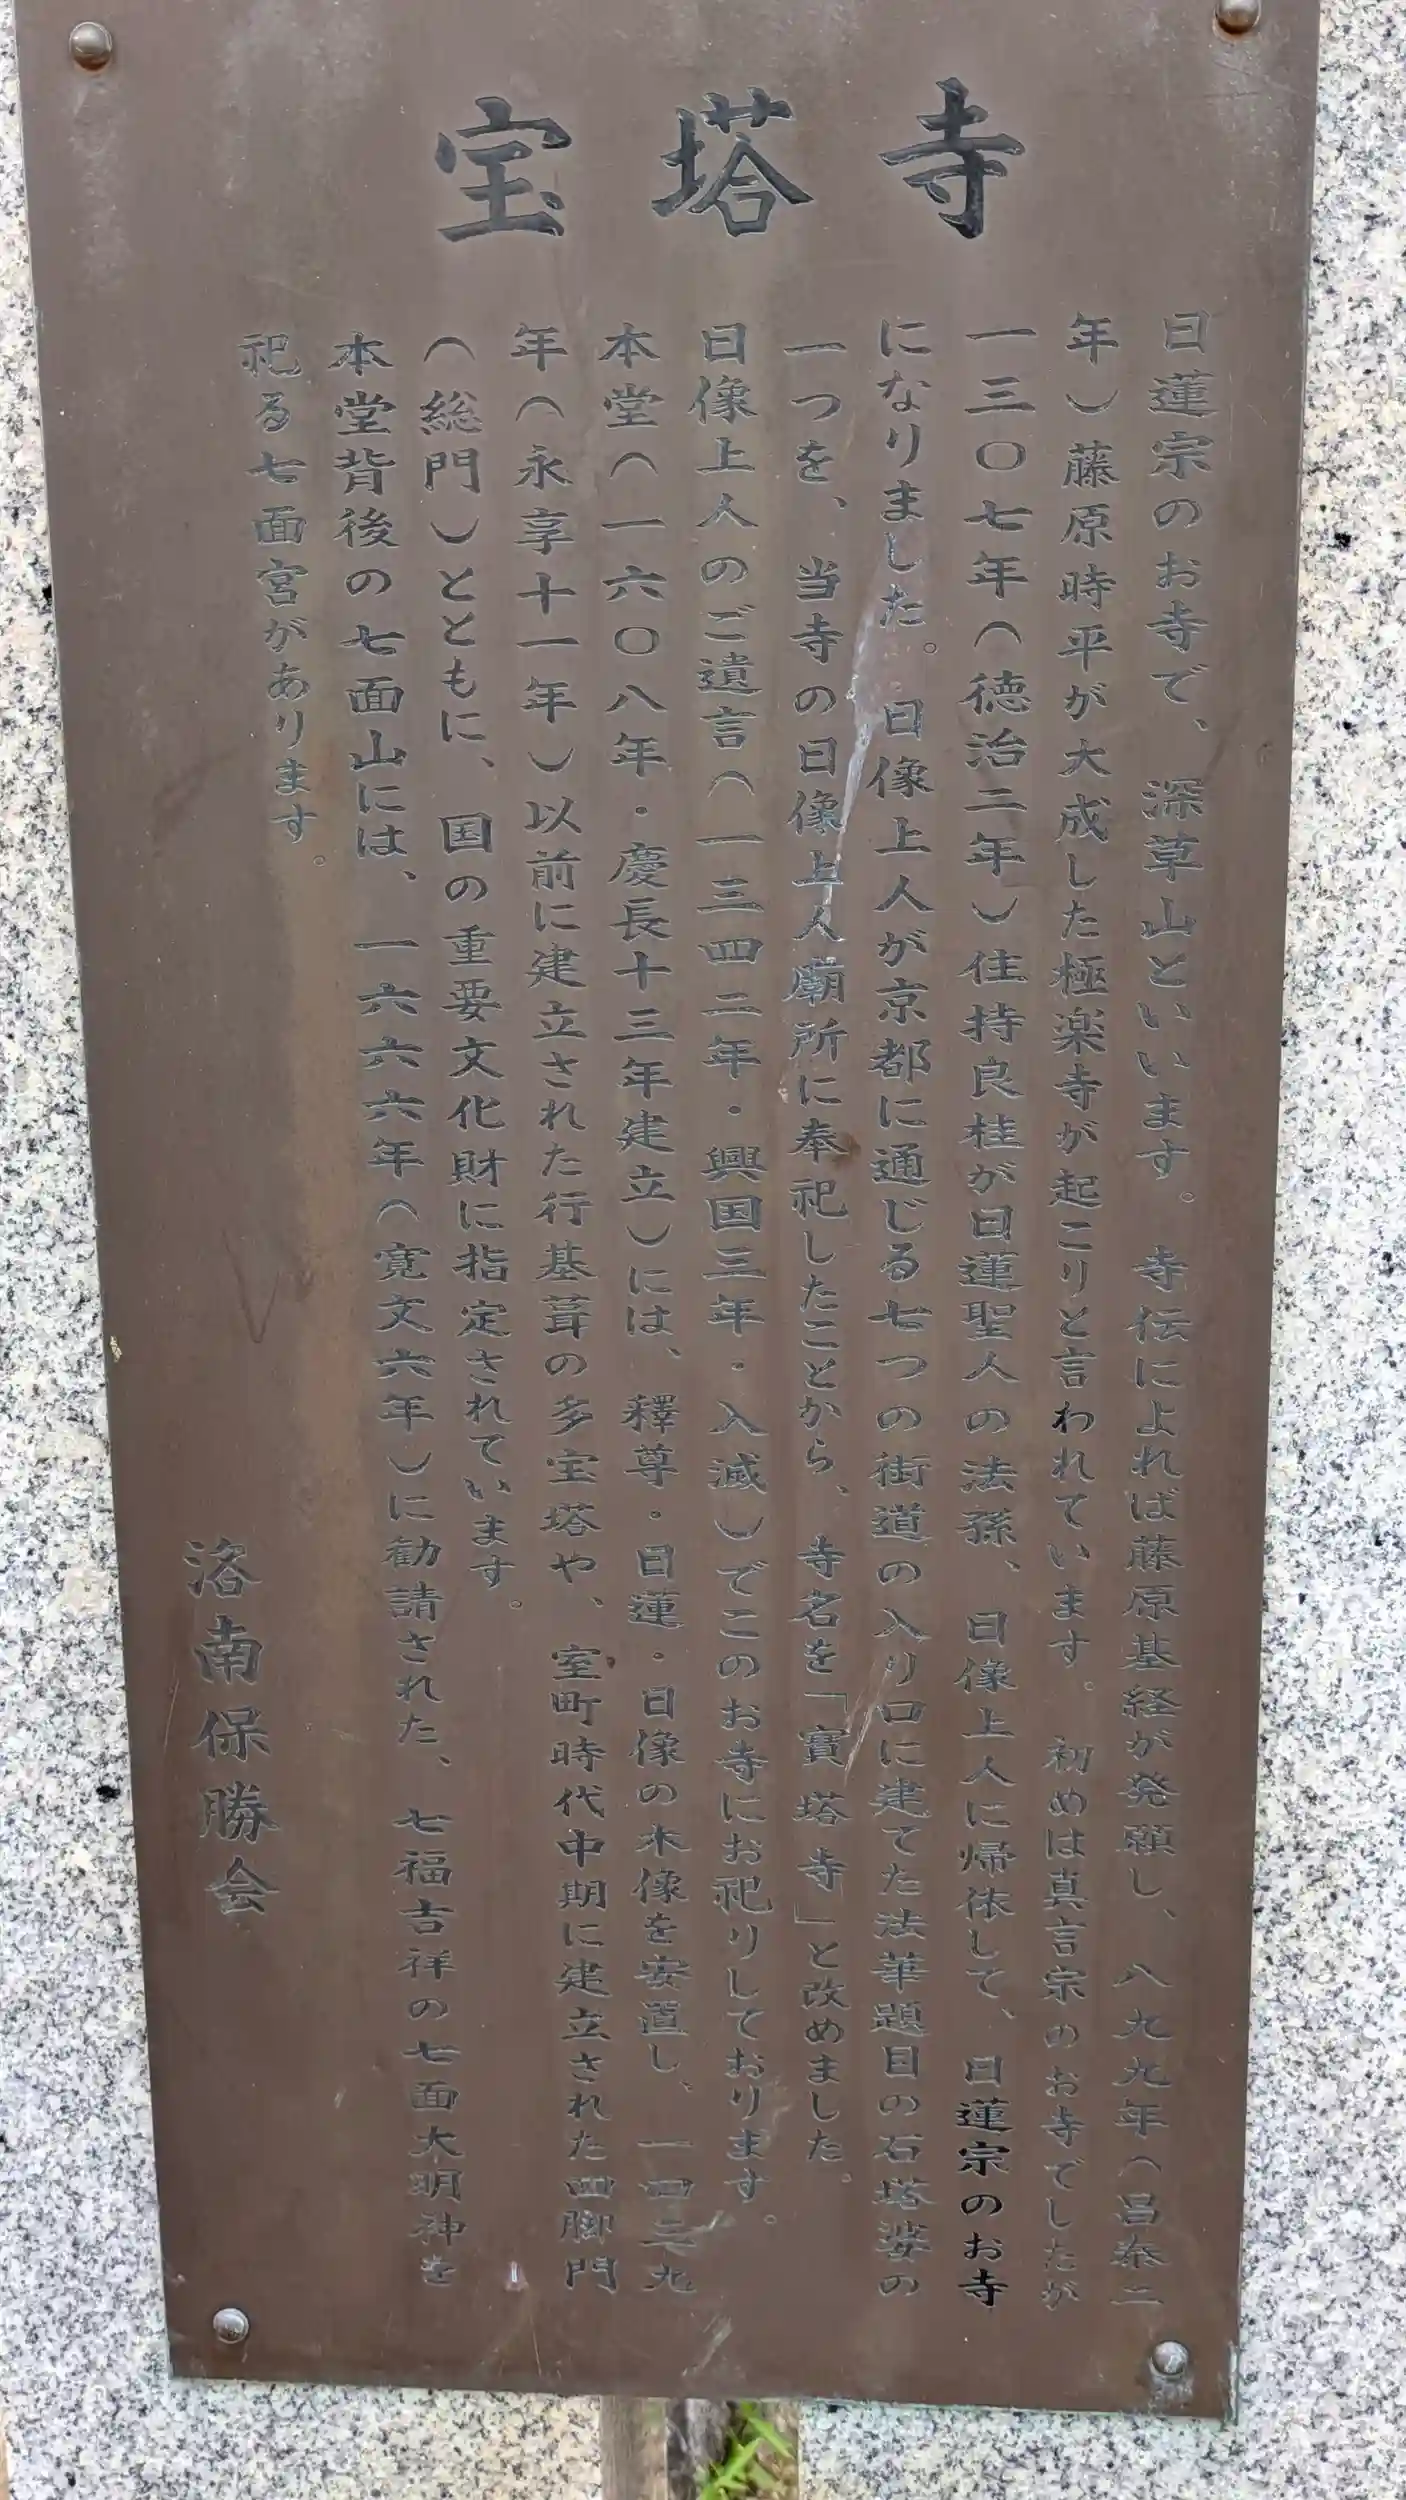 宝塔寺
日蓮宗のお寺で、深草山といいます。寺伝によれば藤原基経が発願し、八九九年（昌泰二
年）藤原時平が大成した極楽寺が起こりと言われています。初めは真言宗のお寺でしたが
一三〇七年（徳治二年）住持良桂が日蓮聖人の法孫、日像上人に帰依して、日蓮宗のお寺
になりました。日像上人が京都に通じる七つの街道の入り口に建てた法華題目の石塔婆の
一つを、当寺の日像上人廟所に奉祀したことから、寺名を「寳塔寺」と改めました。
日像上人のご遺言（一三四二年・興国三年・入滅）でこのお寺にお祀りしております。
本堂（一六〇八年・慶長十三年建立）には、釋尊・日蓮・日像の木像を安置し、一四三九
年（永享十一年）以前に建立された行基葺の多宝塔や、室町時代中期に建立された四脚門
（総門）とともに、国の重要文化財に指定されています。
本堂背後の七面山には、一六六六年（寛文六年）に勧請された、七福吉祥の七面大明神を
祀る七面宮があります。
洛南保勝会